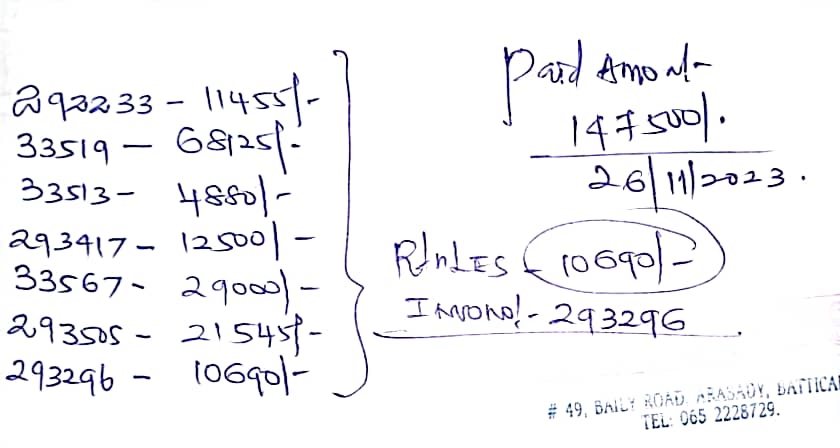 292233 - 11455/-
33519 - 68125/-
33513 - 4880/-
293417 - 12500/-
33567 - 29000/-
293505 - 21545/-
293296 - 10690/-
Paid Amont-
147500/.
26/11/2023.
- 10690/-
293296
# 49, BAILY ROAD, ARASADY, BATTICA
TEL: 065 2228729.